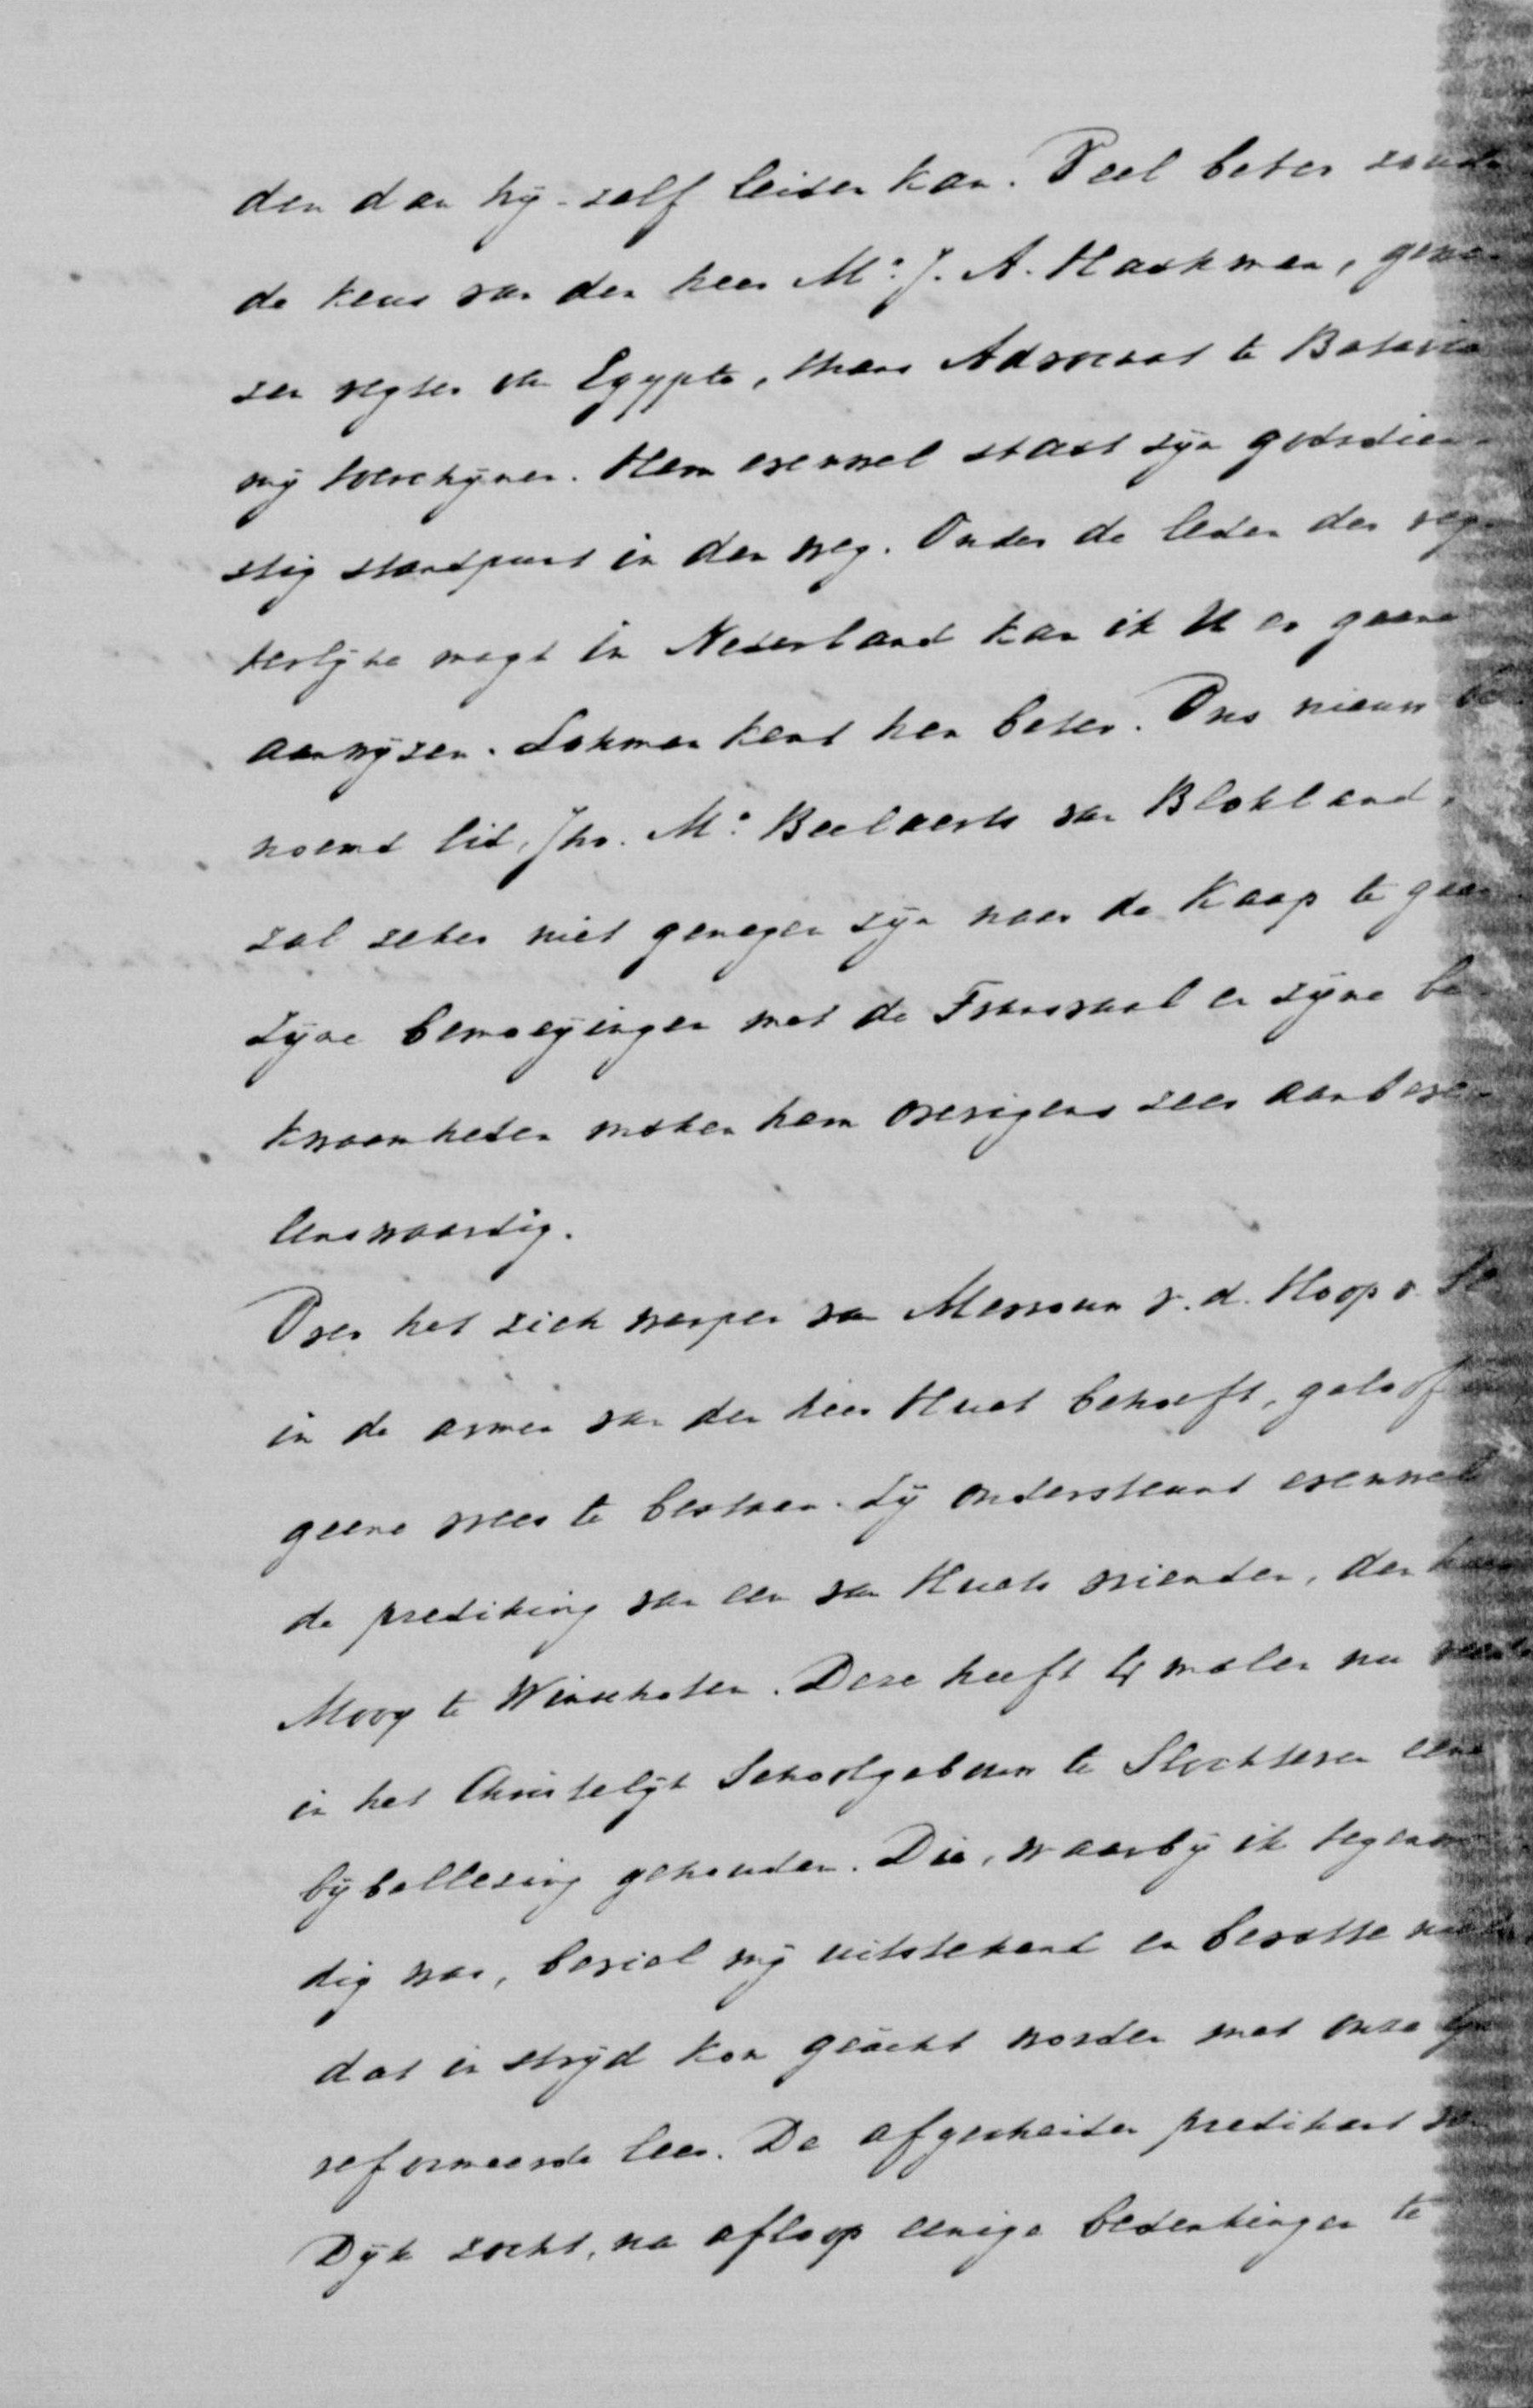 den dan hij-zelf leiden kan. Veel beter zoude
de keus van den heer Mr. J. A. Haakman, gewe-
zen regter in Egypte, thans Advocaat te Batavia
mij toeschijnen. Hem evenwel staat zijn godsdien-
stig standpunt in den weg. Onder de leden der reg-
terlijke magt in Nederland kan ik U er geene
aanwijzen. Lohman kent hen beter. Ons nieuw be-
noemd lid, Jhr. Mr. Beelaerts van Blokland,
zal zeker niet genegen zijn naar de Kaap te gaan
Zijne bemoeijingen met de Transvaal en zijne be-
kwaamheden maken hem overigens zeer aanbeve-
lenswaardig.
Over het zich werpen van Mevrouw v. d. Hoop v. Sl
in de armen van den heer Huet behoeft, geloof
geene vrees te bestaan. Zij ondersteunt evenwel
de prediking van een van Huets vrienden, den heer
Mooy te Winschoten. Deze heeft 4 malen nu reeds
in het Christelijk Schoolgebouw te Slochteren eene
bijbellezing gehouden. Die, waarbij ik tegenwoor-
dig was, beviel mij uitstekend en bevatte niets
dat in strijd kon geächt worden met onze ge-
reformeerde leer. De afgescheiden predikant van
Dijk zocht, na afloop eenige bedenkingen te